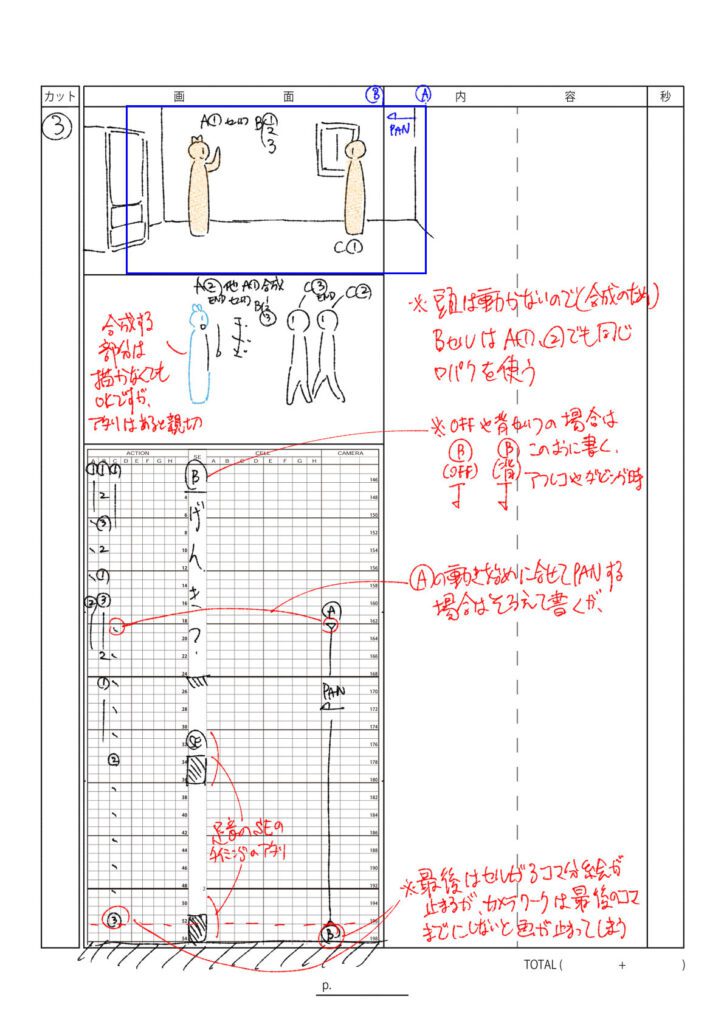 カット
画 面
内 容
秒
Ⓑ
Ⓐ
③
A① セリフ B①
2
3
PAN
C①
A② 他 A① 合成
END セリフ B①
2
③
C③
END
C②
合成する
部分は
描かなくても
OKですが、
アタリはあると親切
※頭は動かないので(合成のため)
BセルはA①、②でも同じ
口パクを使う
※OFFや背中ごしの場合は
Ⓑ Ⓑ このように書く、
(OFF) (背) アフレコやダビング時
Ⓐの動き始めに合せてPANする
場合はそろえて書くが、
ACTION SE CELL CAMERA
A B C D E F G H A B C D E F G H
① ① ①
2
③
2
①
② ③
2
①
②
③
Ⓑ
げんきっ?
SE
Ⓐ
PAN
Ⓑ
2 4 6 8 10 12 14 16 18 20 22 24 26 28 30 32 34 36 38 40 42 44 46 48 2 50 52 54
146 148 150 152 154 156 158 160 162 164 166 168 170 172 174 176 178 180 182 184 186 188 190 192 194 196 198
足音のSEの
タイミングのアタリ
※最後はセルが3コマ分絵が
止まるが、カメラワークは最後のコマ
までにしないと画が止まってしまう
TOTAL ( + )
p.